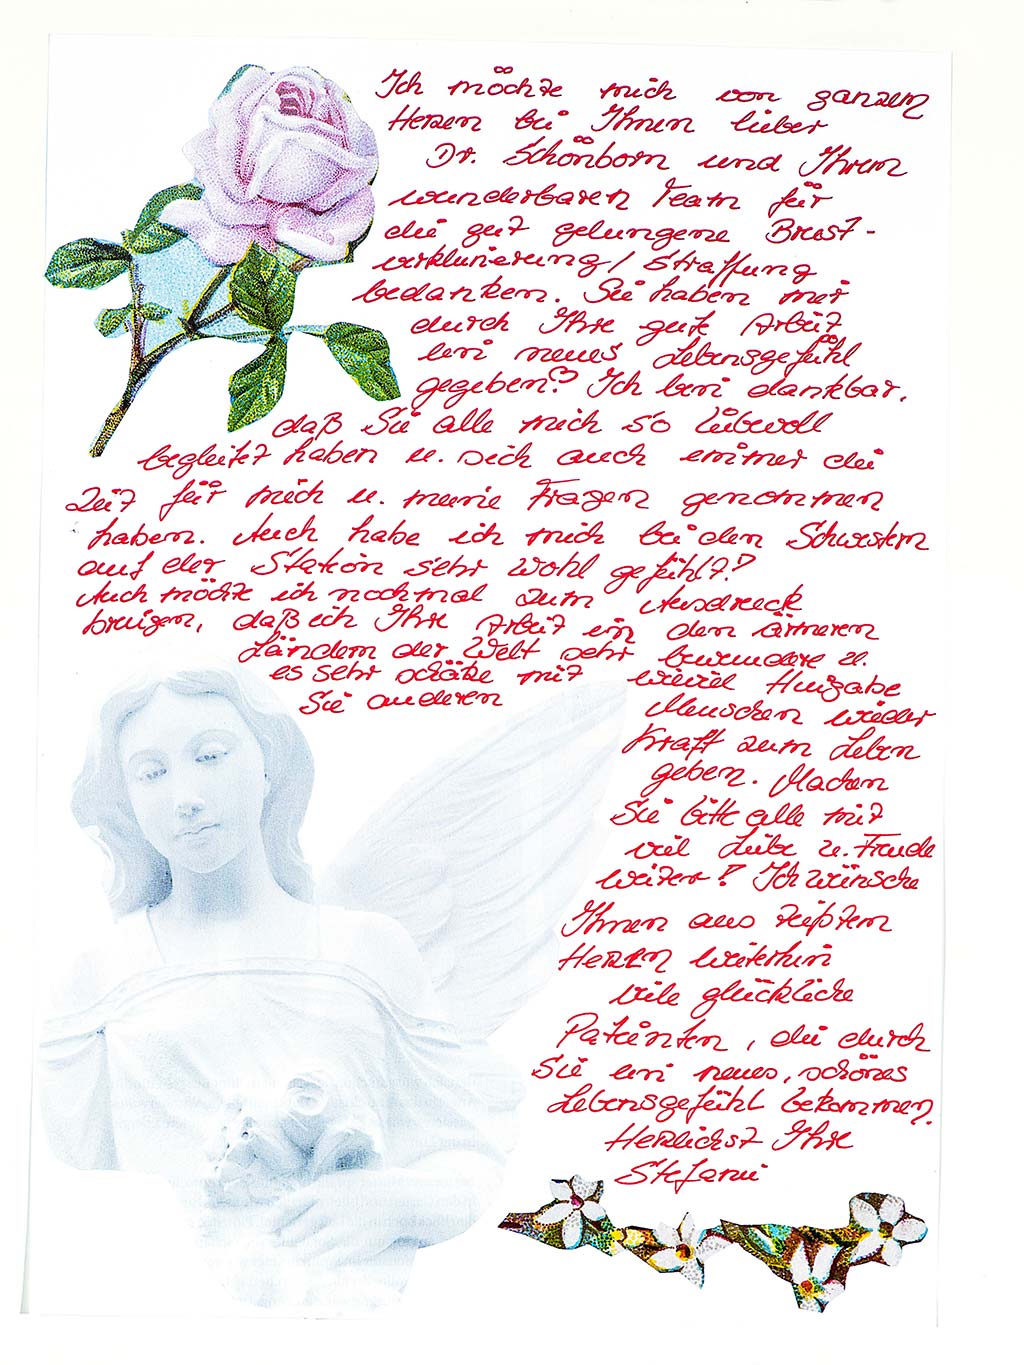 Ich möchte mich von ganzem
Herzen bei Ihnen lieber
Dr. Schönborn und Ihrem
wunderbaren Team für
die gut gelungene Brust-
verkleinerung / Straffung
bedanken. Sie haben mir
durch Ihre gute Arbeit
ein neues Lebensgefühl
gegeben! Ich bin dankbar,
daß Sie alle mich so liebevoll
begleitet haben u. sich auch immer die
Zeit für mich u. meine Fragen genommen
haben. Auch habe ich mich bei den Schwestern
auf der Station sehr wohl gefühlt!
Auch möchte ich nochmal zum Ausdruck
bringen, daß ich Ihre Arbeit in den ärmeren
Ländern der Welt sehr bewundere u.
es sehr schätze mit wieviel Hingabe
Sie anderen
Menschen wieder
Kraft zum Leben
geben. Machen
Sie bitte alle mit
viel Liebe u. Freude
weiter! Ich wünsche
Ihnen aus tiefstem
Herzen weiterhin
viele glückliche
Patienten, die durch
Sie ein neues, schönes
Lebensgefühl bekommen.
Herzlichst Ihre
Stefanie